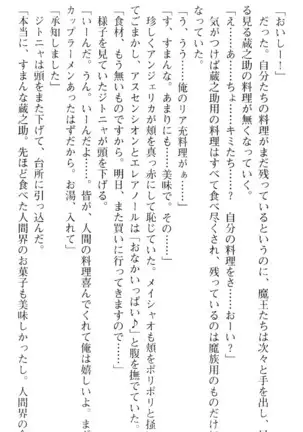 「おいしー！」
だった。自分たちの料理がまだ残っているというのに、魔王たちは次々と手を出し、
る見る蔵之助の料理が無くなっていく。
「え……あ……ちょ……キミたち……？　自分の料理をさ……おーい？」
気がつけば蔵之助用の料理はすべて食べ尽くされ、残っているのは魔族用のものだけに
なっていた。
「う、うう……俺のリア充料理がぁ……」
「す、すまんな。あまりにも……美味で。その……」
珍しくアンジェリカが頬を真っ赤にして恥じていた。メイシャオも頬をポリポリと掻
てごまかし、アスセンシオンとエレアノールは「おなかいっぱい♪」と腹を撫でていた。
「食材、もう無いものですから。明日、また買いに行ってきますので……」
様子を見ていたジトニャが頭を下げる。
「いーんだ。うん、いーんだよ……。皆が、人間の料理喜んでくれて俺は嬉しいよ。まだ
カップラーメンあったはずだから。お湯、入れて」
「承知しました」
ジトニャは頭をまた下げて、台所に引っ込んだ。
「本当に、すまんな蔵之助。先ほど食べた人間界のお菓子も美味しかったし。人間界の食